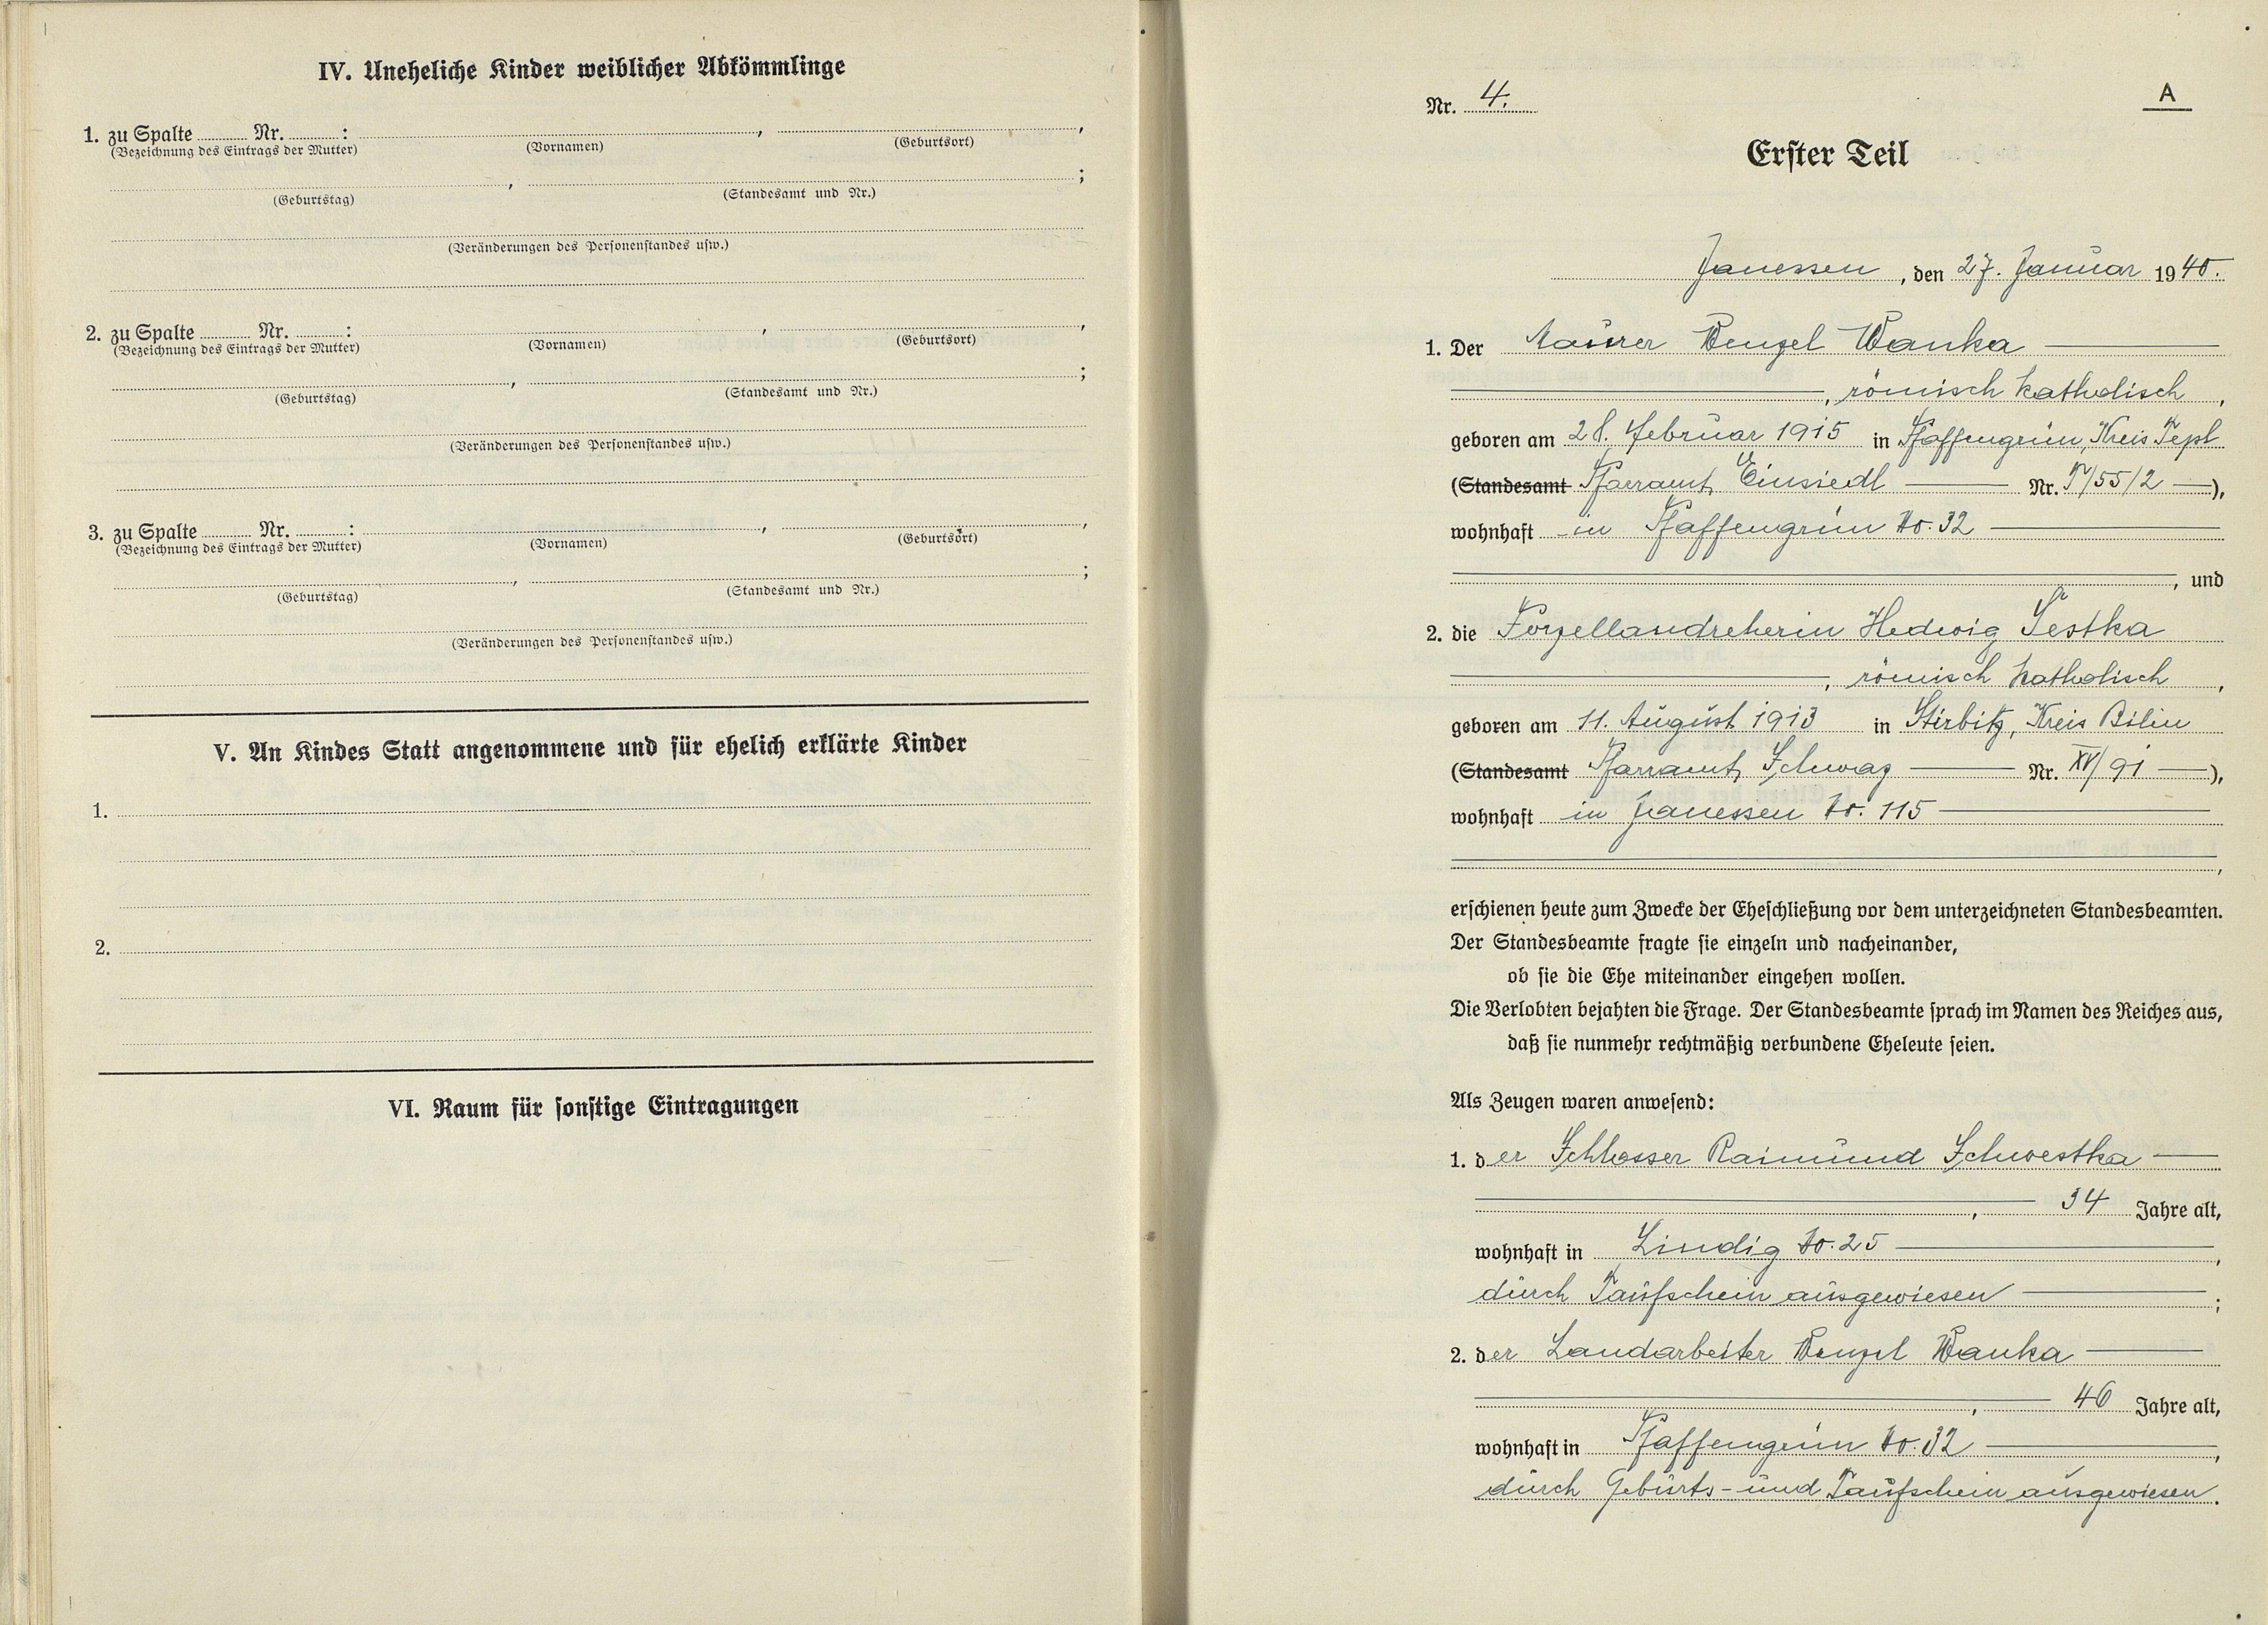 IV. Uneheliche Kinder weiblicher Abkömmlinge
1. zu Spalte ........ Nr. ........ : ........ , ........ ,
(Bezeichnung des Eintrags der Mutter) (Vornamen) (Geburtsort)
........ , ........ ;
(Geburtstag) (Standesamt und Nr.)
(Veränderungen des Personenstandes usw.)
2. zu Spalte ........ Nr. ........ : ........ , ........ ,
(Bezeichnung des Eintrags der Mutter) (Vornamen) (Geburtsort)
........ , ........ ;
(Geburtstag) (Standesamt und Nr.)
(Veränderungen des Personenstandes usw.)
3. zu Spalte ........ Nr. ........ : ........ , ........ ,
(Bezeichnung des Eintrags der Mutter) (Vornamen) (Geburtsort)
........ , ........ ;
(Geburtstag) (Standesamt und Nr.)
(Veränderungen des Personenstandes usw.)
V. An Kindes Statt angenommene und für ehelich erklärte Kinder
1.
2.
VI. Raum für sonstige Eintragungen
A
Nr. 4.
Erster Teil
Janessen, den 27. Januar 1940.
1. Der Maurer Wenzel Wanka
, römisch katholisch,
geboren am 28. Februar 1915 in Pfaffengrün, Kreis Tepl
(Standesamt Pfarramt Einsiedl Nr. /55/2),
wohnhaft in Pfaffengrün No. 32
, und
2. die Porzellandreherin Hedwig Šestka
, römisch katholisch,
geboren am 11. August 1913 in Stirbitz, Kreis Bilin
(Standesamt Pfarramt Schwaz Nr. XV/91),
wohnhaft in Janessen No. 115
,
erschienen heute zum Zwecke der Eheschließung vor dem unterzeichneten Standesbeamten.
Der Standesbeamte fragte sie einzeln und nacheinander,
ob sie die Ehe miteinander eingehen wollen.
Die Verlobten bejahten die Frage. Der Standesbeamte sprach im Namen des Reiches aus,
daß sie nunmehr rechtmäßig verbundene Eheleute seien.
Als Zeugen waren anwesend:
1. der Schlosser Raimund Schwestka
, 34 Jahre alt,
wohnhaft in Lindig No. 25,
durch Taufschein ausgewiesen;
2. der Landarbeiter Wenzel Wanka
, 46 Jahre alt,
wohnhaft in Pfaffengrün No. 32,
durch Geburts- und Taufschein ausgewiesen.